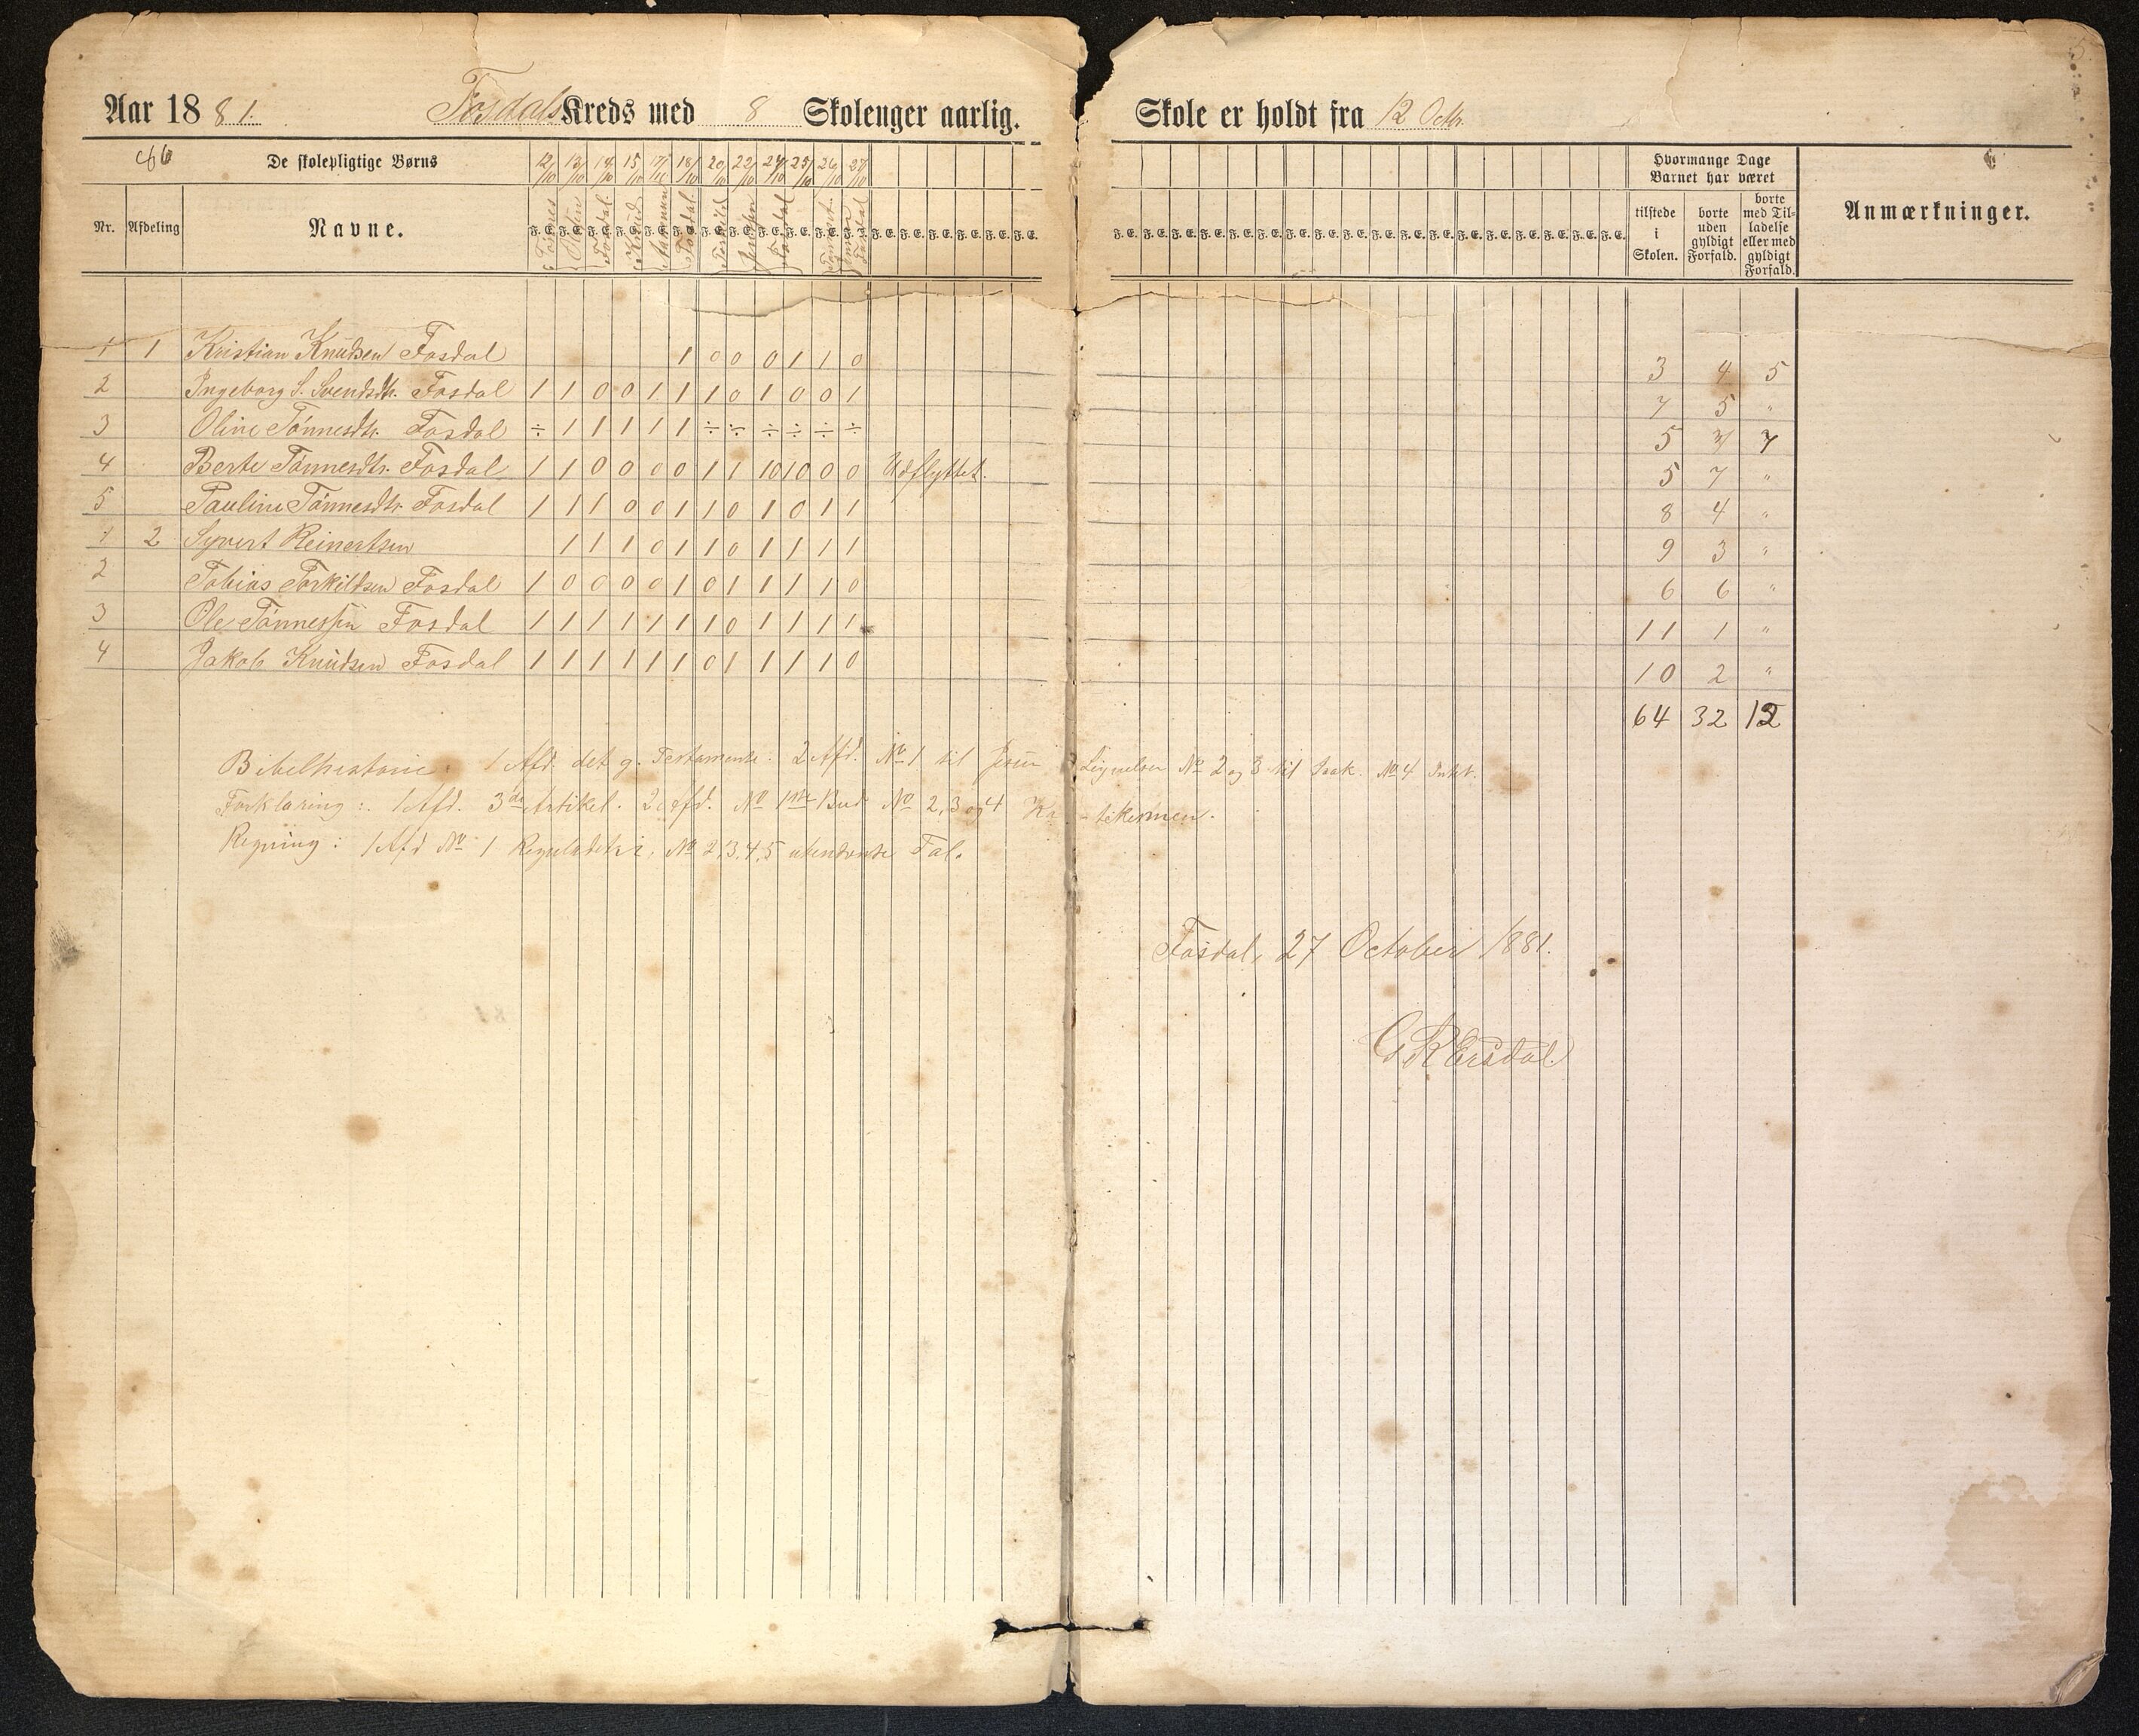 Aar 1881. Fosdals Kreds med 8 Skolenger aarlig. Skole er holdt fra 12 Octb.
De skolepligtige Børns
12/10 13/10 14/10 15/10 17/10 18/10 20/10 22/10 24/10 25/10 26/10 27/10
Hvormange Dage Barnet har været
Anmærkninger.
Nr. Afdeling Navne.
F. E. F. E. F. E. F. E. F. E. F. E. F. E. F. E. F. E. F. E. F. E. F. E. F. E. F. E. F. E. F. E. F. E. F. E.
F. E. F. E. F. E. F. E. F. E. F. E. F. E. F. E. F. E. F. E. F. E. F. E. F. E. F. E. F. E. F. E. F. E. F. E.
tilstede i Skolen.
borte uden gyldigt Forfald.
borte med Tilladelse eller med gyldigt Forfald.
1 1 Kristian Knudsen Fosdal 1 0 0 0 1 1 0 3 4 5
2 Ingeborg S. Svendsdtr. Fosdal 1 1 0 0 1 1 1 0 1 0 0 1 7 5 "
3 Oline Tønnesdtr. Fosdal ÷ 1 1 1 1 1 ÷ ÷ ÷ ÷ ÷ ÷ 5 7
4 Berte Tønnesdtr. Fosdal 1 1 0 0 0 0 1 1 10 10 0 0 Udflyttet. 5 7 "
5 Pauline Tønnesdtr. Fosdal 1 1 1 0 0 1 1 0 1 0 1 1 8 4 "
1 2 Syvert Reinertsen 1 1 1 0 1 1 0 1 1 1 1 9 3 "
2 Tobias Torkildsen Fosdal 1 0 0 0 0 1 0 1 1 1 1 0 6 6 "
3 Ole Tønnessen Fosdal 1 1 1 1 1 1 1 0 1 1 1 1 11 1 "
4 Jakob Knudsen Fosdal 1 1 1 1 1 1 0 1 1 1 1 0 10 2 "
64 32 12
Bibelhistorie: 1 Afd. det g. Testamente. 2 Afd. No 1 til Jesu Lignelser No 2 og 3 til Isak. No 4 Intet.
Forklaring: 1 Afd. 3die Artikel. 2 Afd. No 1ste Bud No 2, 3 og 4 Ka-tekismen.
Regning: 1 Afd No 1 Reguladetri, No 2, 3, 4, 5 Tal.
Fosdal, 27 October 1881.
G R Ersdal